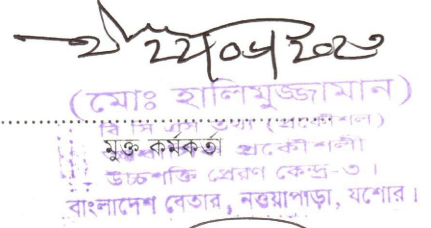 ২২/০৬/২০২৩
(মোঃ হালিমুজ্জামান)
বি সি এস তথ্য (প্রকৌশল)
মুক্ত কর্মকর্তা
প্রকৌশলী
উচ্চশক্তি প্রেরণ কেন্দ্র-৩।
বাংলাদেশ বেতার, নওয়াপাড়া, যশোর।